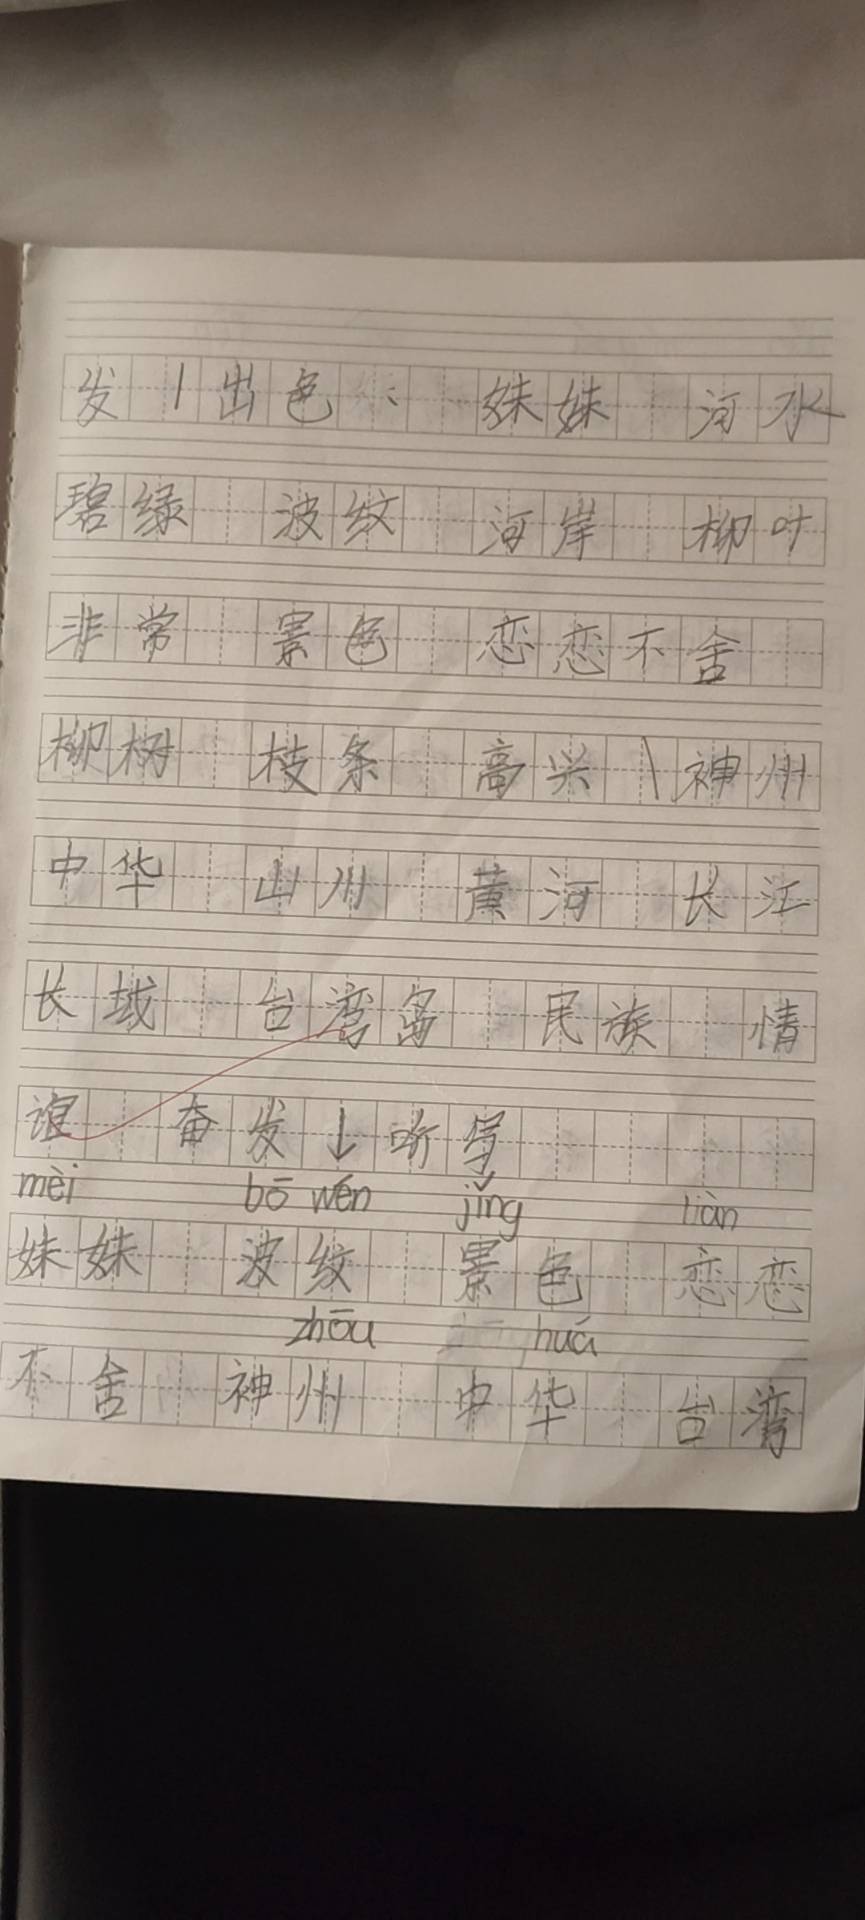 发 出色 妹妹 河水
碧绿 波纹 河岸 柳叶
非常 景色 恋恋不舍
柳树 枝条 高兴 神州
中华 山川 黄河 长江
长城 台湾岛 民族 情
谊 奋发 ↓ 听写
mèi bō wén jǐng liàn
妹妹 波纹 景色 恋恋
zhōu huá
不舍 神州 中华 台湾